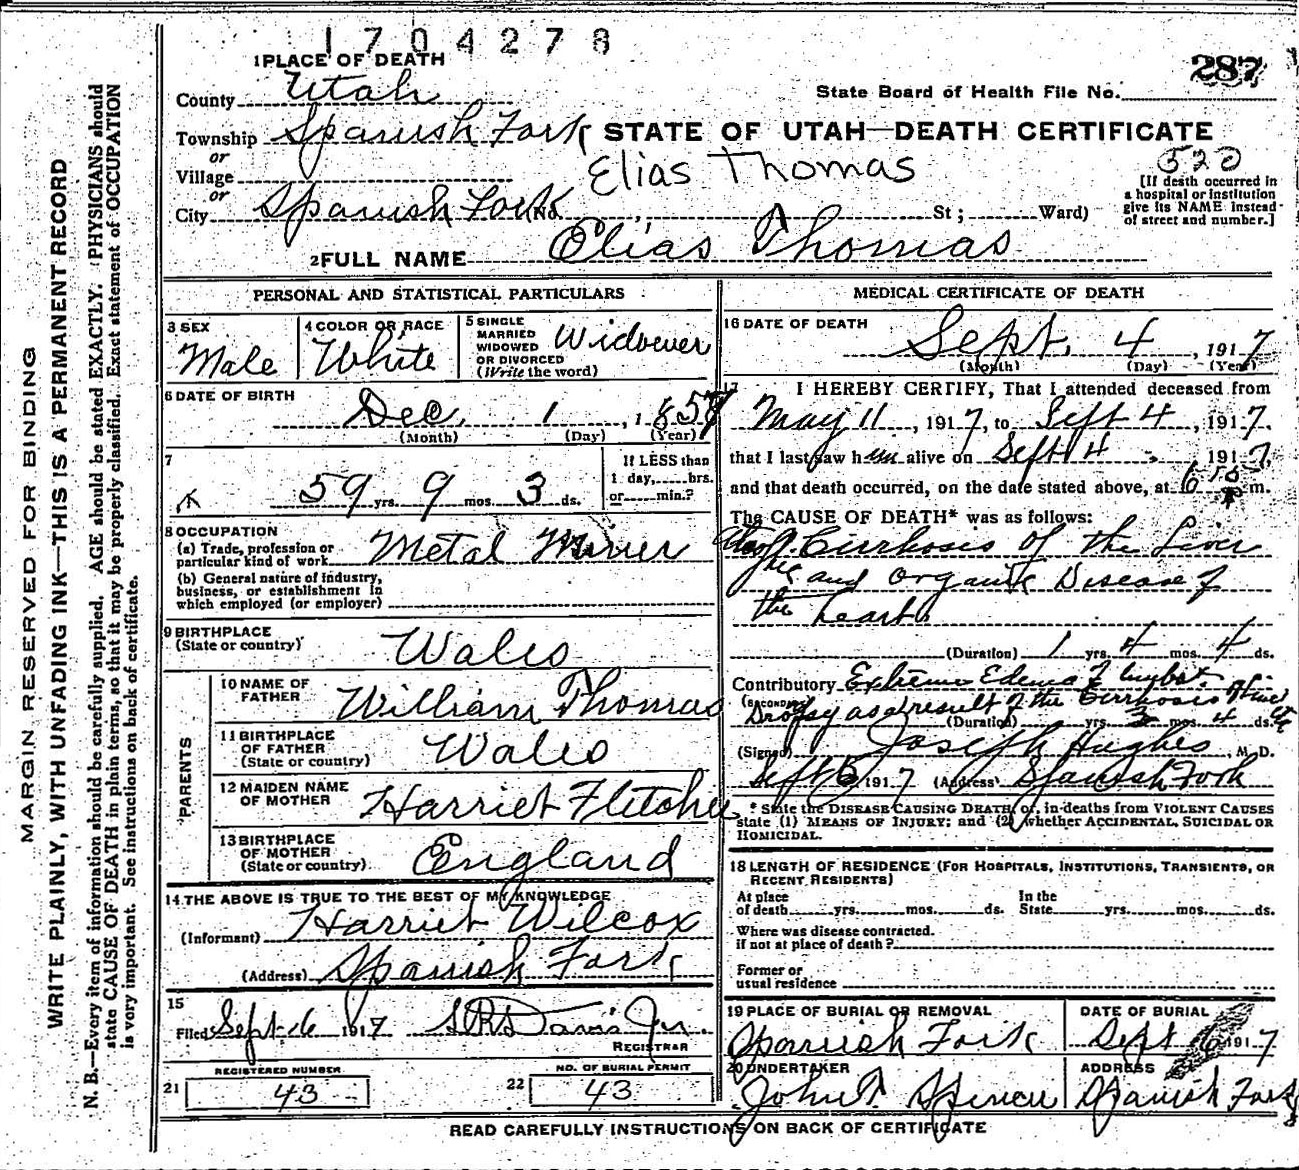 1704278
1 PLACE OF DEATH
287
County Utah
State Board of Health File No.
Township Spanish Fork
STATE OF UTAH—DEATH CERTIFICATE
or
Village
Elias Thomas
520
or
City Spanish Fork No. St; Ward)
[If death occurred in
a hospital or institution
give its NAME instead
of street and number.]
2 FULL NAME Elias Thomas
PERSONAL AND STATISTICAL PARTICULARS
3 SEX
Male
4 COLOR OR RACE
White
5 SINGLE
MARRIED
WIDOWED
OR DIVORCED
(Write the word)
Widower
6 DATE OF BIRTH
Dec. 1, 1857
(Month) (Day) (Year)
7
59 yrs. 9 mos. 3 ds.
If LESS than
1 day, hrs.
or min.?
8 OCCUPATION
(a) Trade, profession or
particular kind of work Metal Miner
(b) General nature of industry,
business, or establishment in
which employed (or employer)
9 BIRTHPLACE
(State or country) Wales
PARENTS
10 NAME OF
FATHER William Thomas
11 BIRTHPLACE
OF FATHER
(State or country) Wales
12 MAIDEN NAME
OF MOTHER Harriet Fletcher
13 BIRTHPLACE
OF MOTHER
(State or country) England
14 THE ABOVE IS TRUE TO THE BEST OF MY KNOWLEDGE
(Informant) Harriet Wilcox
(Address) Spanish Fork
15
Filed Sept 6 1917 Davis Jr.
REGISTRAR
21 REGISTERED NUMBER
43
22 NO. OF BURIAL PERMIT
43
MEDICAL CERTIFICATE OF DEATH
16 DATE OF DEATH
Sept. 4, 1917
(Month) (Day) (Year)
17 I HEREBY CERTIFY, That I attended deceased from
May 11, 1917, to Sept 4, 1917.
that I last saw him alive on Sept 4, 1917,
and that death occurred, on the date stated above, at 6 m.
The CAUSE OF DEATH* was as follows:
Cirrhosis of the Liver
and Organic Disease of
the heart.
(Duration) 1 yrs. 4 mos. 4 ds.
Contributory Extreme Edema
(SECONDARY)
Dropsy as a result of the Cirrhosis of liver
(Duration) yrs. 3 mos. 4 ds.
(Signed) Joseph Hughes, M. D.
Sept 1917 (Address) Spanish Fork
* State the DISEASE CAUSING DEATH, or, in deaths from VIOLENT CAUSES
state (1) MEANS OF INJURY; and (2) whether ACCIDENTAL, SUICIDAL OR
HOMICIDAL.
18 LENGTH OF RESIDENCE (FOR HOSPITALS, INSTITUTIONS, TRANSIENTS, OR
RECENT RESIDENTS)
At place
of death yrs. mos. ds.
In the
State yrs. mos. ds.
Where was disease contracted.
if not at place of death?
Former or
usual residence
19 PLACE OF BURIAL OR REMOVAL
Spanish Fork
DATE OF BURIAL
Sept 6 1917
20 UNDERTAKER
John
ADDRESS
Spanish Fork
READ CAREFULLY INSTRUCTIONS ON BACK OF CERTIFICATE
MARGIN RESERVED FOR BINDING
WRITE PLAINLY, WITH UNFADING INK—THIS IS A PERMANENT RECORD
N. B.—Every item of information should be carefully supplied. AGE should be stated EXACTLY. PHYSICIANS should
state CAUSE OF DEATH in plain terms, so that it may be properly classified. Exact statement of OCCUPATION
is very important. See instructions on back of certificate.